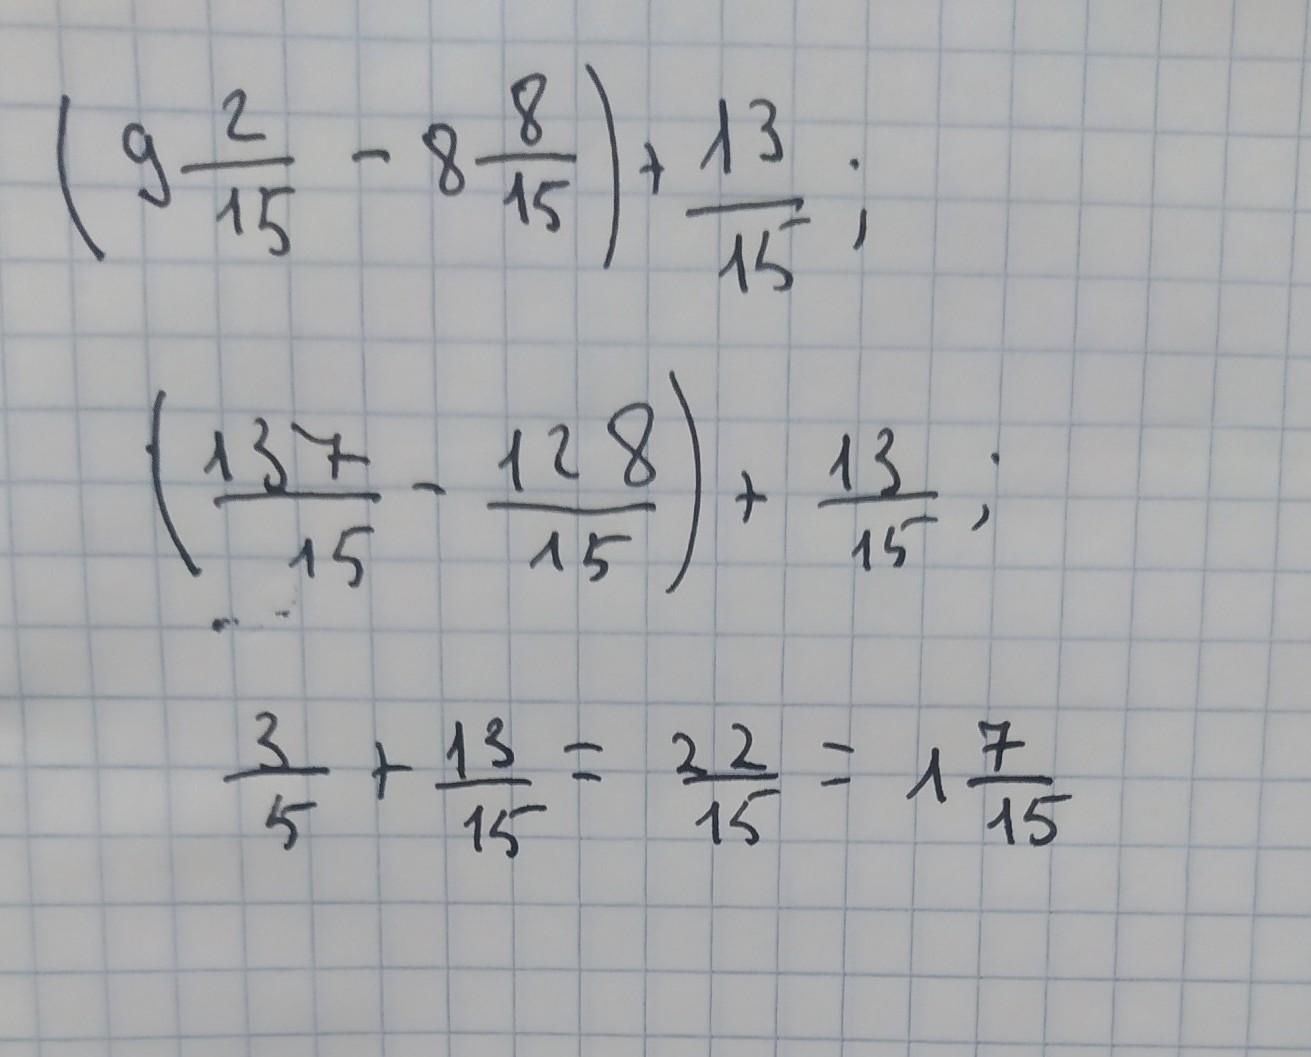 (9 2/15 - 8 8/15) + 13/15 ;
(137/15 - 128/15) + 13/15 ;
3/5 + 13/15 = 22/15 = 1 7/15